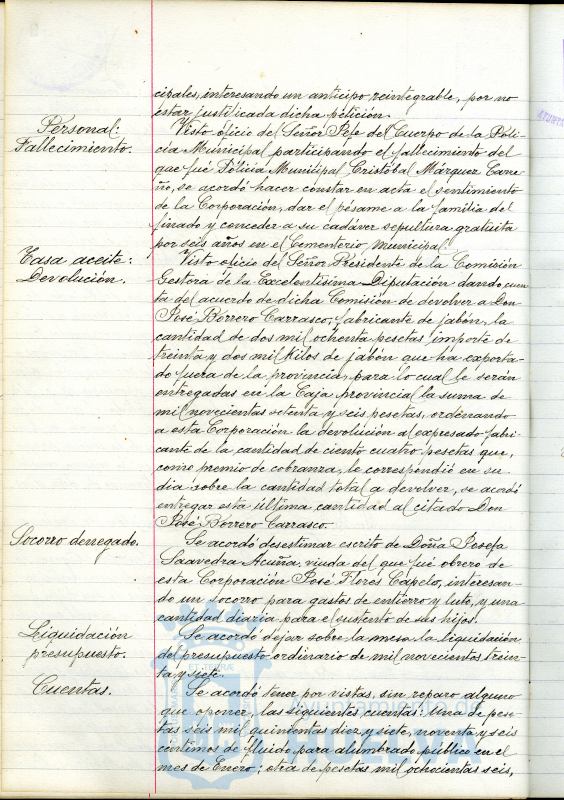 cipales, interesando un anticipo reintegrable, por no
estar justificada dicha petición.
Personal:
Fallecimiento.
Visto oficio del Señor Jefe del Cuerpo de la Poli-
cía Municipal participando el fallecimiento del
que fué Policía Municipal Cristóbal Márquez
ño, se acordó hacer constar en acta el sentimiento
de la Corporación, dar el pésame a la familia del
finado y conceder a su cadáver sepultura gratuita
por seis años en el Cementerio Municipal.
Tasa aceite:
Devolución.
Visto oficio del Señor Presidente de la Comisión
Gestora de la Excelentísima Diputación dando cuen-
ta del acuerdo de dicha Comisión de devolver a Don
José Borrero Carrasco, fabricante de jabón, la
cantidad de dos mil ochenta pesetas importe de
treinta y dos mil kilos de jabón que ha exporta-
do fuera de la provincia, para lo cual le serán
entregadas en la Caja provincial la suma de
mil novecientas setenta y seis pesetas, ordenando
a esta Corporación la devolución al expresado fabri-
cante de la cantidad de ciento cuatro pesetas que,
como premio de cobranza, le correspondió en su
día sobre la cantidad total a devolver, se acordó
entregar esta última cantidad al citado Don
José Borrero Carrasco.
Socorro denegado.
Se acordó desestimar escrito de Doña Josefa
Saavedra Acuña, viuda del que fué obrero de
esta Corporación José Flores Capelo, interesan-
do un socorro para gastos de entierro y luto, y una
cantidad diaria para el sustento de sus hijos.
Liquidación
presupuesto.
Se acordó dejar sobre la mesa la liquidación
del presupuesto ordinario de mil novecientos trein-
ta y siete.
Cuentas.
Se acordó tener por vistas, sin reparo alguno
que oponer, las siguientes cuentas: Una de pese-
tas seis mil quinientas diez y siete, noventa y seis
céntimos de fluido para alumbrado público en el
mes de Enero; otra de pesetas mil ochocientas seis,
Ayuntamiento de
HUELVA